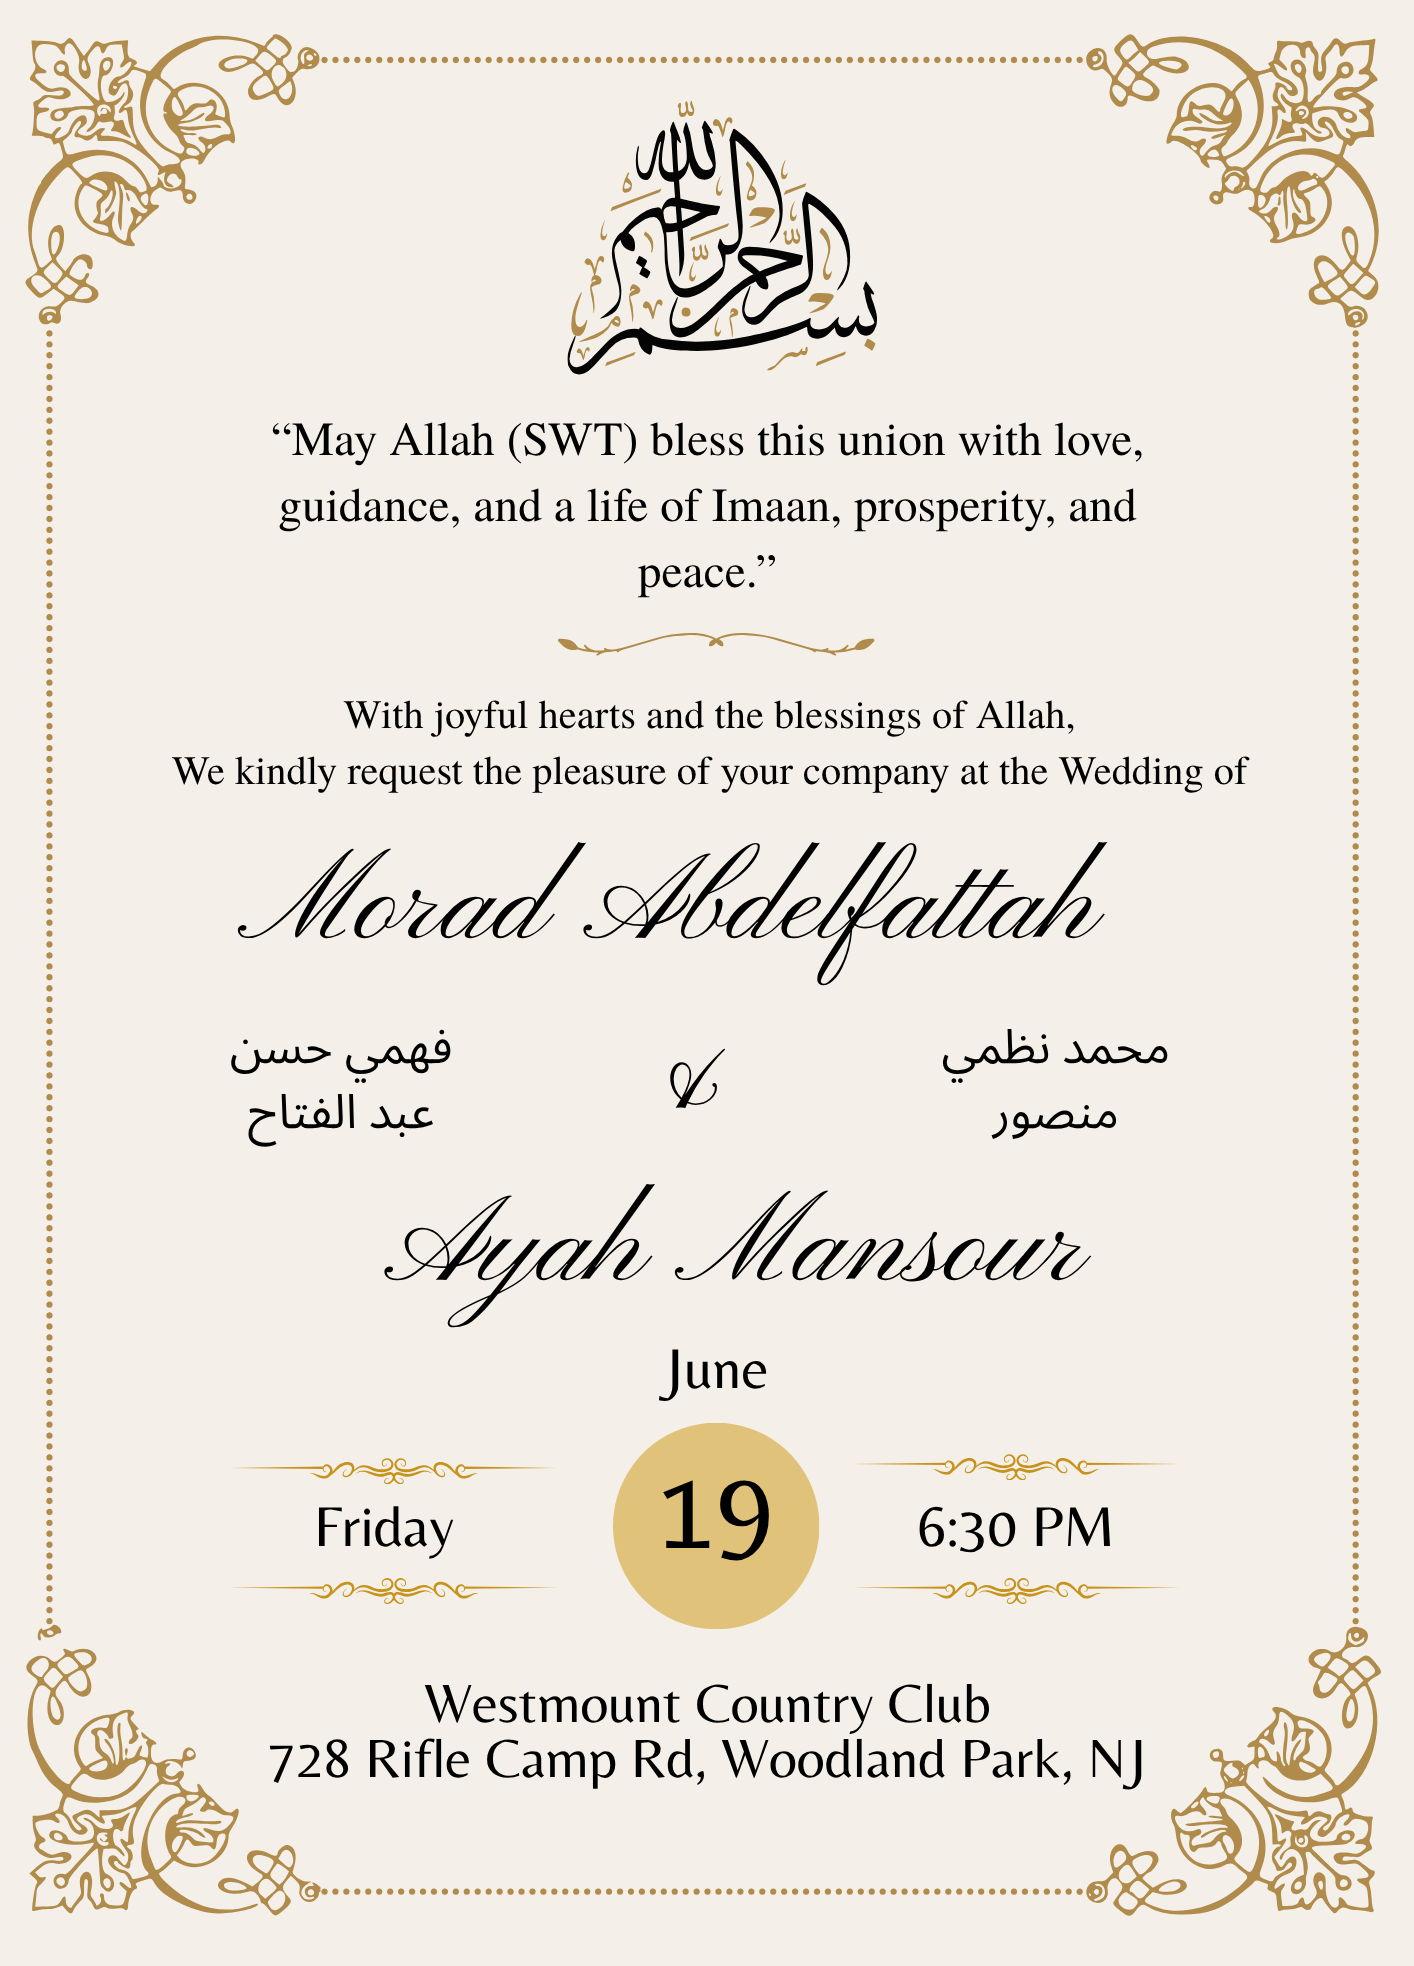 بسم الله الرحمن الرحيم
“May Allah (SWT) bless this union with love,
guidance, and a life of Imaan, prosperity, and
peace.”
With joyful hearts and the blessings of Allah,
We kindly request the pleasure of your company at the Wedding of
Morad Abdelfattah
محمد نظمي
منصور
&
فهمي حسن
عبد الفتاح
Ayah Mansour
June
Friday
19
6:30 PM
Westmount Country Club
728 Rifle Camp Rd, Woodland Park, NJ